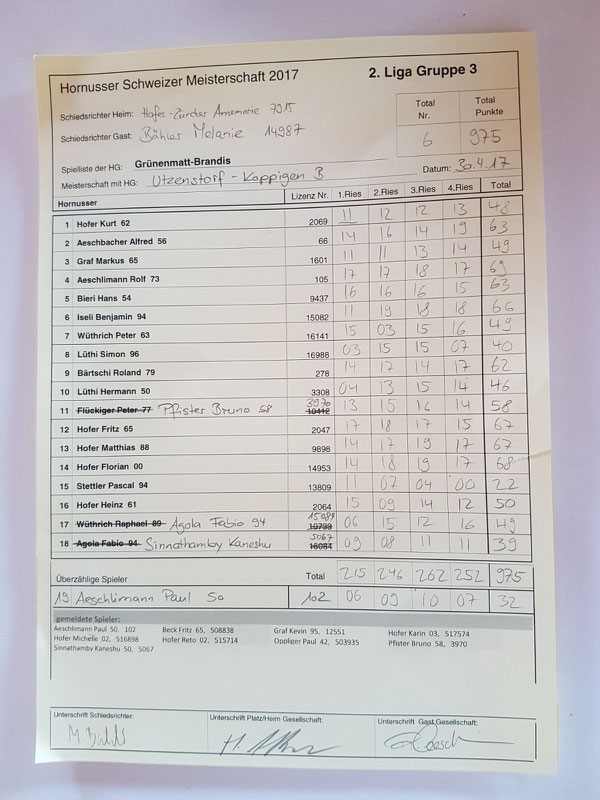 Hornusser Schweizer Meisterschaft 2017 2. Liga Gruppe 3
Schiedsrichter Heim: Hofer-Zürcher Annemarie 7915 Total Nr. Total Punkte
Schiedsrichter Gast: Bähler Melanie 14987 6 975
Spielliste der HG: Grünenmatt-Brandis
Meisterschaft mit HG: Utzenstorf - Koppigen B Datum: 30.4.17
Hornusser Lizenz Nr. 1.Ries 2.Ries 3.Ries 4.Ries Total
1 Hofer Kurt 62 2069 11 12 12 13 48
2 Aeschbacher Alfred 56 66 14 16 14 19 63
3 Graf Markus 65 1601 11 11 13 14 49
4 Aeschlimann Rolf 73 105 17 17 18 17 69
5 Bieri Hans 54 9437 16 16 16 15 63
6 Iseli Benjamin 94 15082 11 19 18 18 66
7 Wüthrich Peter 63 16141 15 03 15 16 49
8 Lüthi Simon 96 16988 03 15 15 07 40
9 Bärtschi Roland 79 278 14 17 14 17 62
10 Lüthi Hermann 50 3308 04 13 15 14 46
11 Flückiger Peter 77 Pfister Bruno 58 3970 10412 13 15 16 14 58
12 Hofer Fritz 65 2047 17 18 17 15 67
13 Hofer Matthias 88 9898 14 17 19 17 67
14 Hofer Florian 00 14953 14 18 19 17 68
15 Stettler Pascal 94 13809 11 07 04 00 22
16 Hofer Heinz 61 2064 15 09 14 12 50
17 Wüthrich Raphael 89 Agola Fabio 94 15084 10739 06 15 12 16 49
18 Agola Fabio 94 Sinnathamby Kaneshu 5067 09 08 11 11 39
Überzählige Spieler Total 215 246 262 252 975
19 Aeschlimann Paul 50 102 06 09 10 07 32
gemeldete Spieler:
Aeschlimann Paul 50, 102 Beck Fritz 65, 508838 Graf Kevin 95, 12551 Hofer Karin 03, 517574
Hofer Michelle 02, 516898 Hofer Reto 02, 515714 Oppliger Paul 42, 503935 Pfister Bruno 58, 3970
Sinnathamby Kaneshu 50, 5067
Unterschrift Schiedsrichter: Unterschrift Platz/Heim Gesellschaft: Unterschrift Gast Gesellschaft: